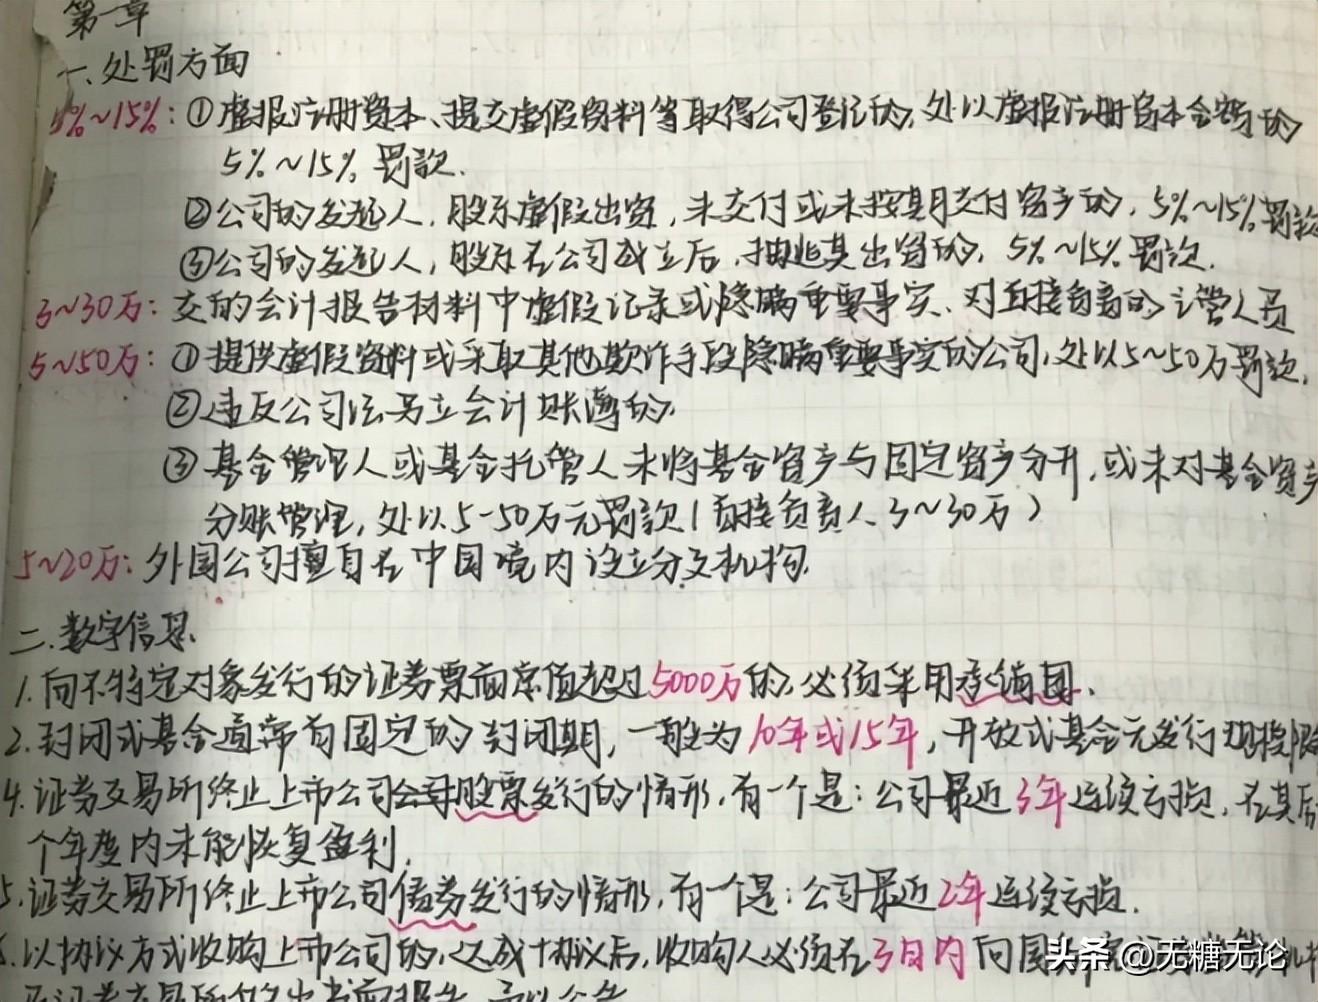 第一章
一、处罚方面
5%~15%：①虚报注册资本、提交虚假资料等取得公司登记的，处以虚报注册资本金额的
5%~15%罚款.
②公司的发起人，股东虚假出资，未交付或未按期交付资产的，5%~15%罚款
③公司的发起人，股东在公司成立后，抽逃其出资的，5%~15%罚款.
3~30万：交的会计报告材料中虚假记录或隐瞒重要事实、对直接负责的主管人员
5~50万：①提供虚假资料或采取其他欺诈手段隐瞒重要事实的公司，处以5~50万罚款.
②违反公司法另立会计账簿的，
③基金管理人或基金托管人未将基金资产与固定资产分开，或未对基金资产
分账管理，处以5-50万元罚款（直接负责人、3~30万）
5~20万：外国公司擅自在中国境内设立分支机构.
二.数字信息.
1.向不特定对象发行的证券票面总值超过5000万的，必须采用承销团.
2.封闭式基金通常有固定的封闭期，一般为10年或15年，开放式基金无发行规模限
4.证券交易所终止上市公司股票发行的情形，有一个是：公司最近3年连续亏损，在其后
个年度内未能恢复盈利.
5.证券交易所终止上市公司债券发行的情形，有一个是：公司最近2年连续亏损.
以协议方式收购上市公司的，达成协议后，收购人必须在3日内向国
头条 @无糖无论